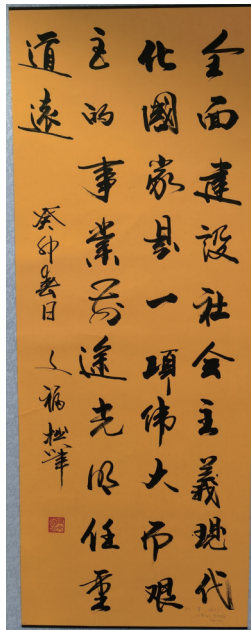 全面建設社会主義現代
化國家是一項偉大而艱
巨的事業前途光明任重
道遠
癸卯春日
福松筆